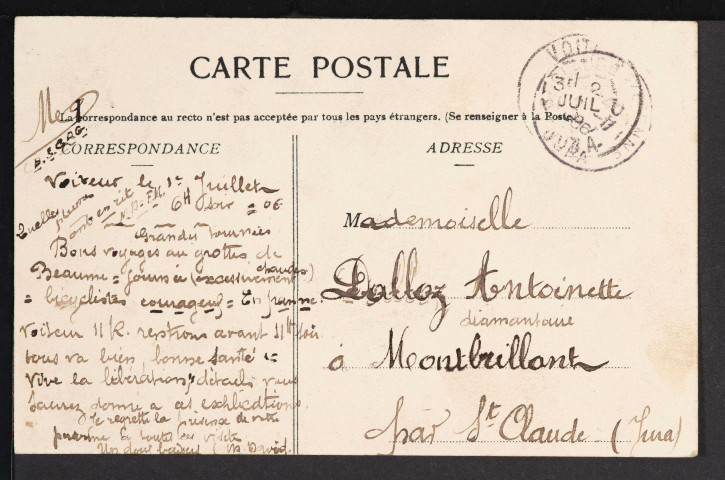 CARTE POSTALE
La correspondance au recto n'est pas acceptée par tous les pays étrangers. (Se renseigner à la Poste)
CORRESPONDANCE
ADRESSE
Voiteur le 1er Juillet
6H soir = 06
Grandes tournées
Bons voyages au grottes de
Beaume = journée (excessivement chaudes)
= bicyclistes courageux = En panne
Voiteur 11 K. rentrons avant 11H soir
tous va bien, bonne santé
Vive la libération, détails vous
saurez donné a ces explications
Je regrette la présence de votre
personne
Un doux baiser
Mademoiselle
Dalloz Antoinette
diamantaire
à Montbrillant
par St Claude (Jura)
JUIL
JURA